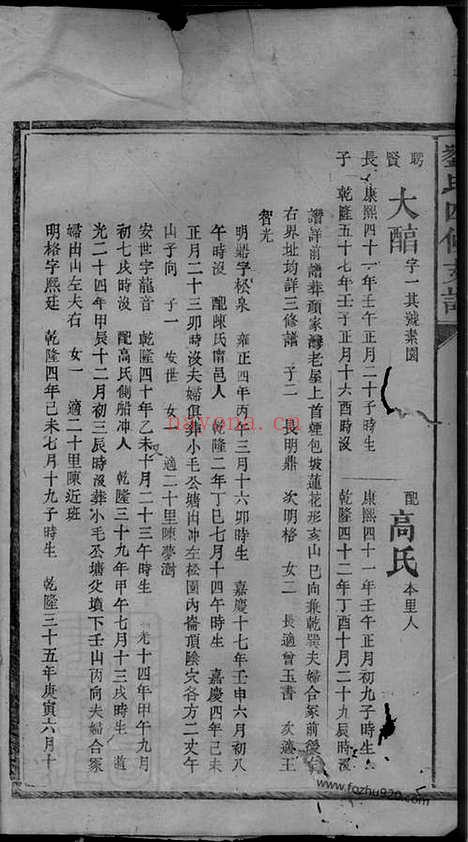 劉氏四修支譜
聘賢長子
大醕 字一其號素園
康熙四十一年壬午正月二十子時生
乾隆五十七年壬子正月十六酉時沒
配 高氏 本里人
康熙四十一年壬午正月初九子時生
乾隆四十二年丁酉十月二十九辰時沒
讚詳前譜葬顏家灣老屋上首煙包坡蓮花形亥山巳向兼乾巽夫婦合冢前後左
右界址均詳三修譜 子二 長明鼎 次明格 女二 長適曾玉書 次適王
智光
明鼎字松泉 雍正四年丙午三月十六卯時生 嘉慶十七年壬申六月初八
午時沒 配陳氏甯邑人 乾隆二年丁巳七月十四午時生 嘉慶四年己未
正月二十三卯時沒夫婦俱葬小毛坔塘由冲左松園內崙頂陰穴各方二丈午
山子向 子一 安世 女 適二十里陳夢澍
安世字龍音 乾隆四十年乙未十月二十三午時生 光十四年甲午九月
初七戌時沒 配高氏側船冲人 乾隆三十九年甲午七月十三戌時生 道
光二十四年甲辰十二月初三辰時沒葬小毛坔塘父墳下壬山丙向夫婦合冢
婦由山左夫右 女一 適二十里陳近班
明格字熙廷 乾隆四年己未七月十九子時生 乾隆三十五年庚寅六月十
nayona.cn
www.fozhu920.com